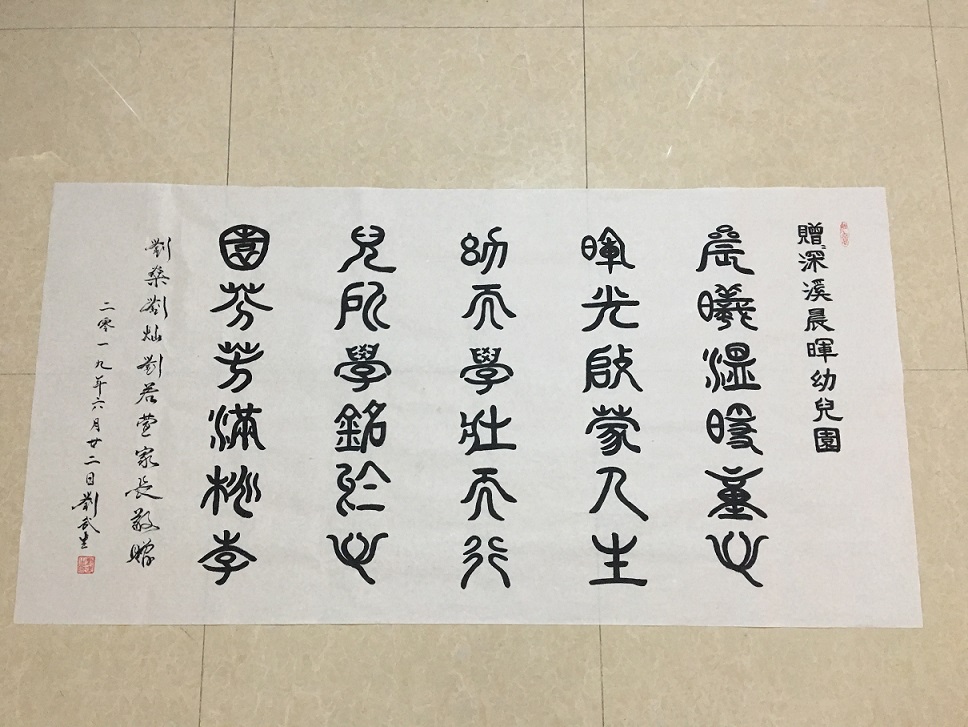 贈深溪晨暉幼兒園
晨曦溫暖童心
暉光啟蒙人生
幼而學壯而行
兒所學銘於心
園芬芳滿桃李
劉燊劉灿劉若萱家長敬贈
二零一九年六月廿二日劉武生